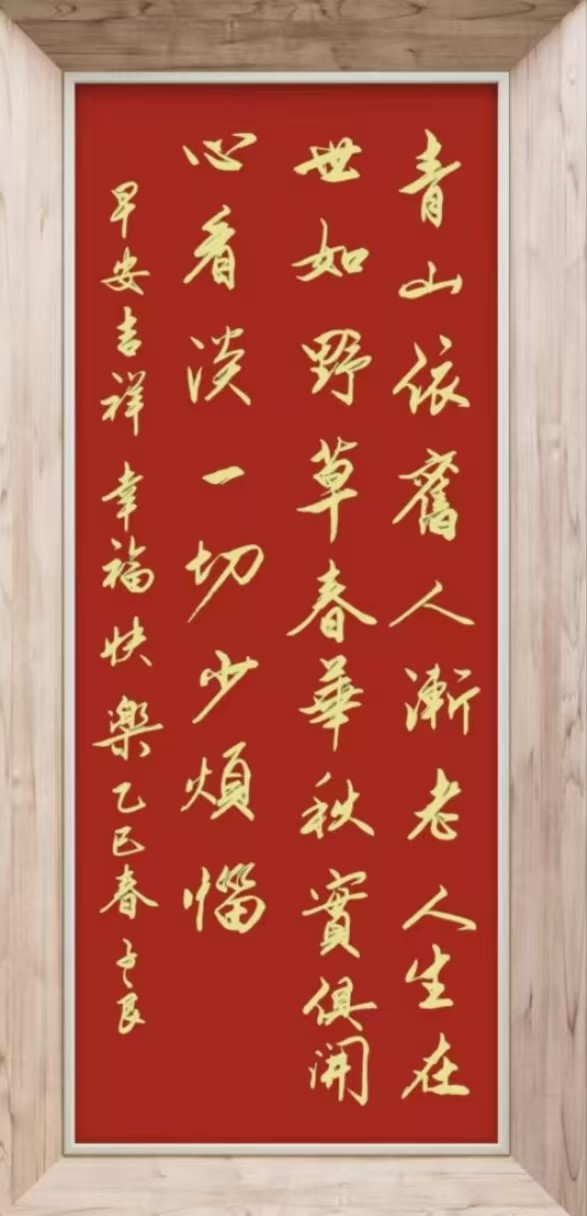 青山依舊人漸老人生在
世如野草春華秋實俱開
心看淡一切少煩惱
早安吉祥幸福快樂乙巳春子良